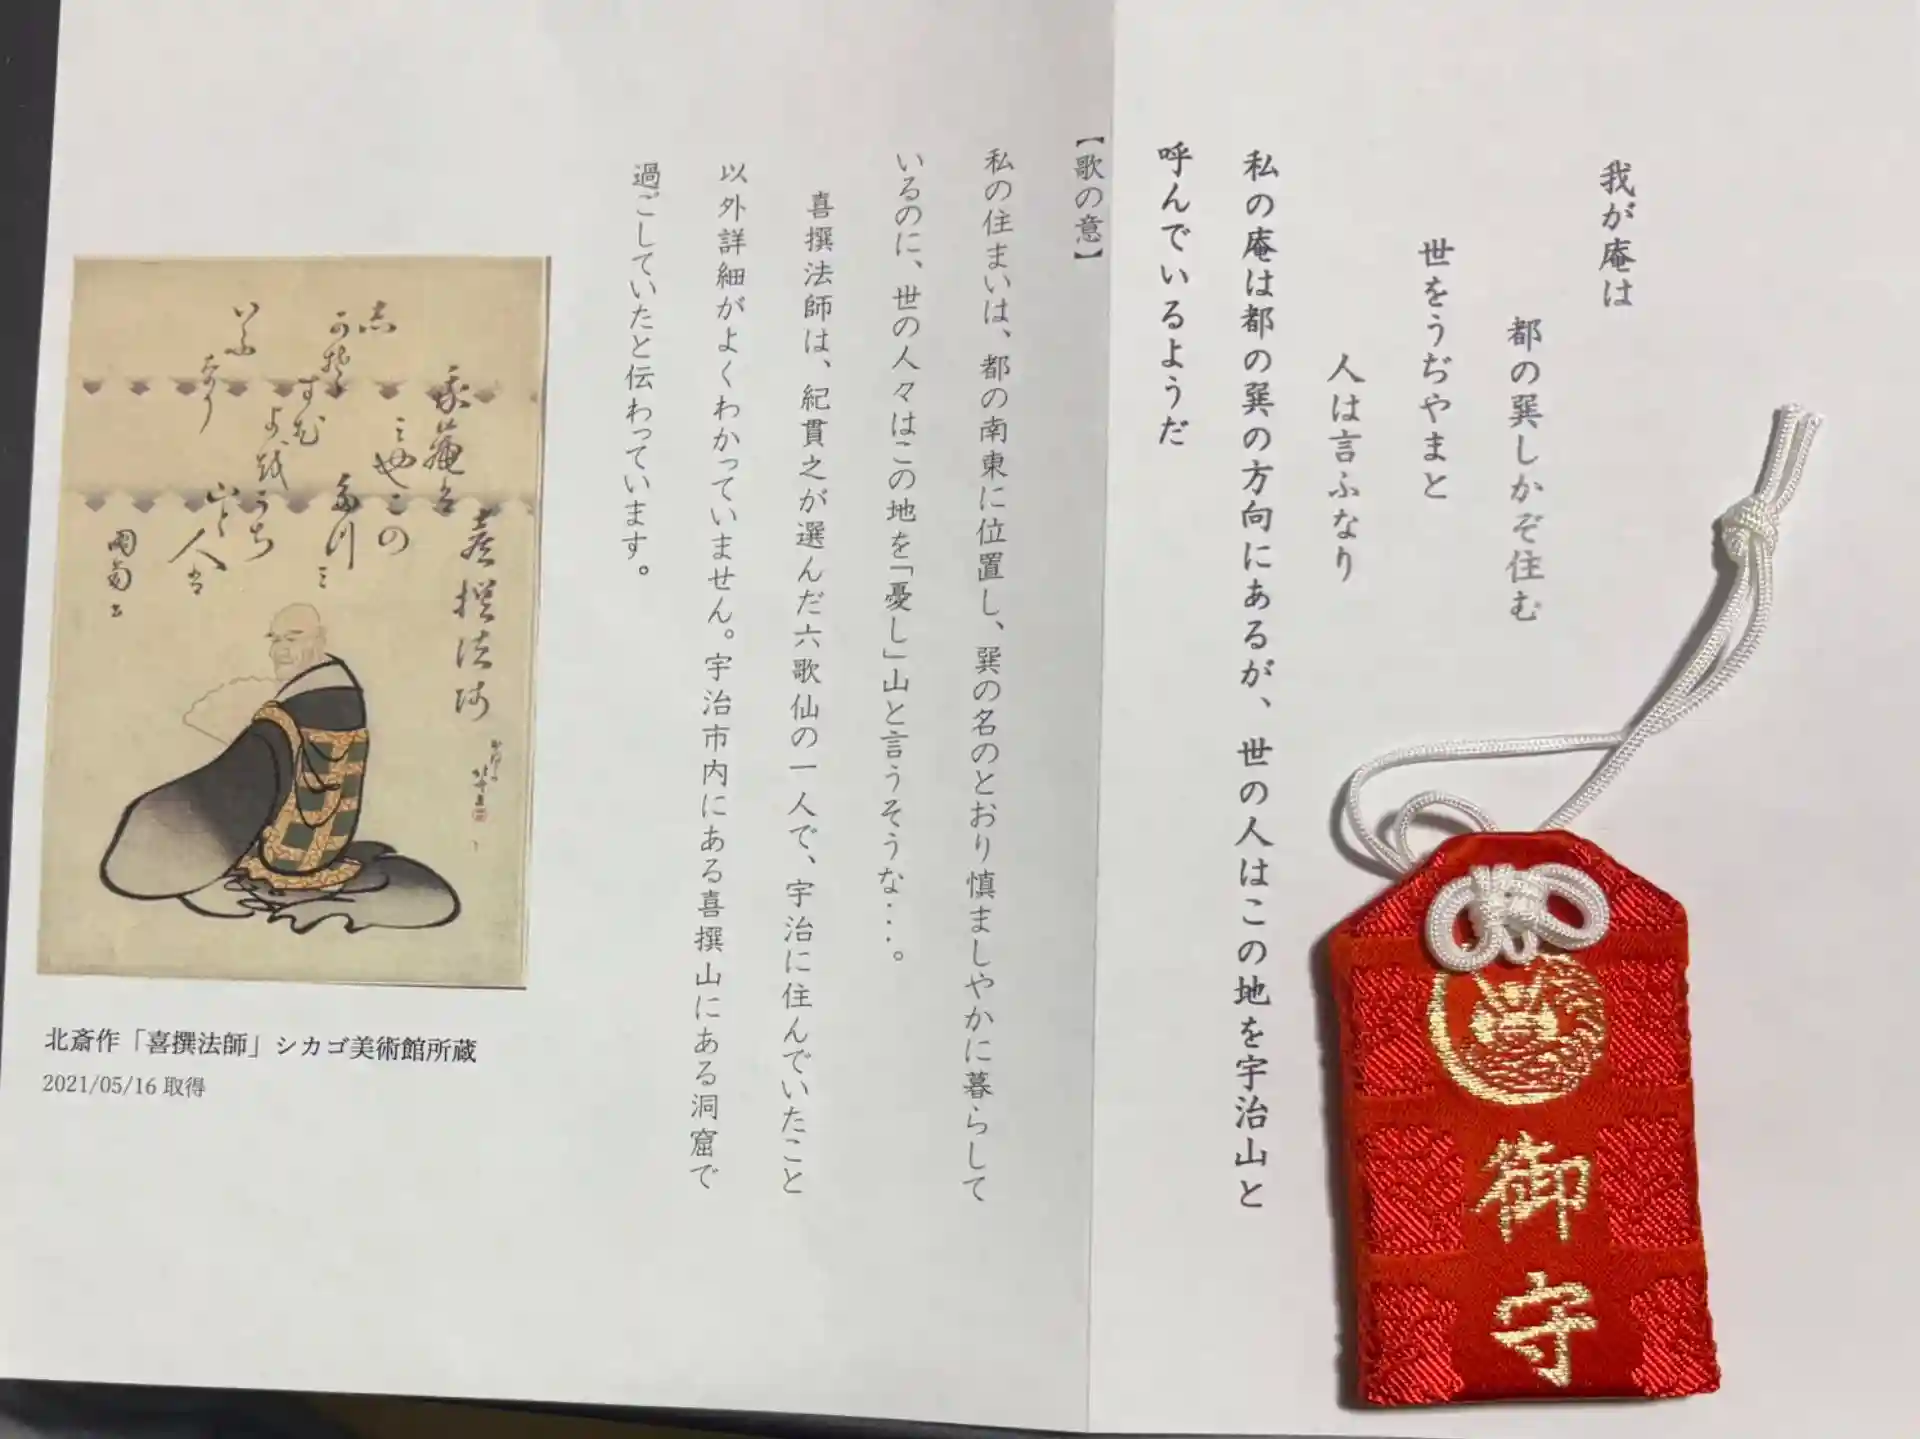 我が庵は
都の巽しかぞ住む
世をうぢやまと
人は言ふなり
私の庵は都の巽の方向にあるが、世の人はこの地を宇治山と
呼んでいるようだ
【歌の意】
私の住まいは、都の南東に位置し、巽の名のとおり慎ましやかに暮らして
いるのに、世の人々はこの地を「憂し」山と言うそうな・・・。
喜撰法師は、紀貫之が選んだ六歌仙の一人で、宇治に住んでいたこと
以外詳細がよくわかっていません。宇治市内にある喜撰山にある洞窟で
過ごしていたと伝わっています。
喜撰法師
北斎作「喜撰法師」シカゴ美術館所蔵
2021/05/16 取得
御守